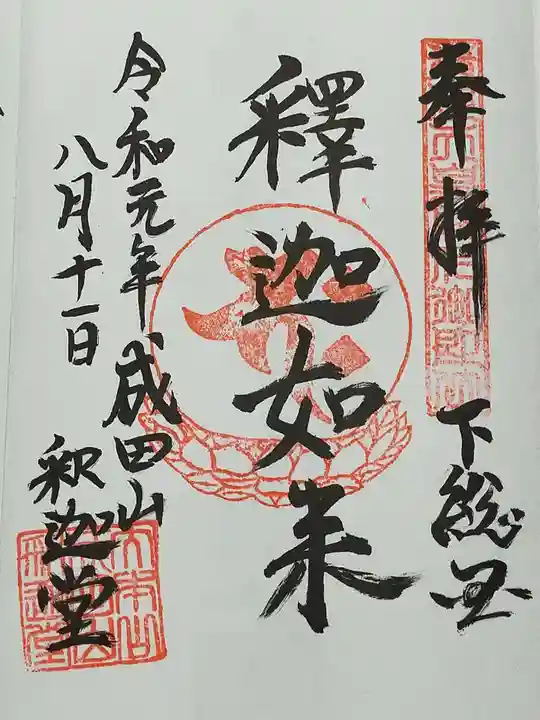 奉拝
下総国
釋迦如来
令和元年
八月十一日
成田山
釈迦堂